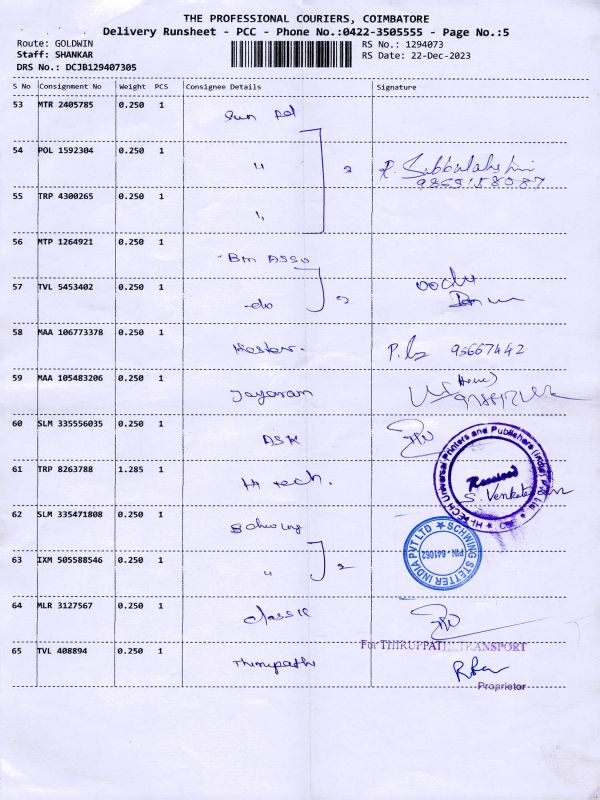 THE PROFESSIONAL COURIERS, COIMBATORE
Delivery Runsheet - PCC - Phone No.:0422-3505555 - Page No.:5
Route: GOLDWIN
RS No.: 1294073
Staff: SHANKAR
RS Date: 22-Dec-2023
DRS No.: DCJB129407305
S No Consignment No Weight PCS Consignee Details Signature
53 MTR 2405785 0.250 1
54 POL 1592304 0.250 1 " 2
55 TRP 4300265 0.250 1 "
56 MTP 1264921 0.250 1 Bm ASSO
57 TVL 5453402 0.250 1 -do 2
58 MAA 106773378 0.250 1 95667442
59 MAA 105483206 0.250 1 Jayaram
60 SLM 335556035 0.250 1 ASK
61 TRP 8263788 1.285 1 Hi tech.
HI-TECH Universal Printers and Publishers (India) Pvt. Ltd.
Received
S. Venkate
62 SLM 335471808 0.250 1
SCHWING STETTER INDIA PVT LTD
PIN - 641062
63 IXM 505588546 0.250 1 " 2
64 MLR 3127567 0.250 1 classic
65 TVL 408894 0.250 1 Thirupathi
For THIRUPPATHI TRANSPORT
Proprietor